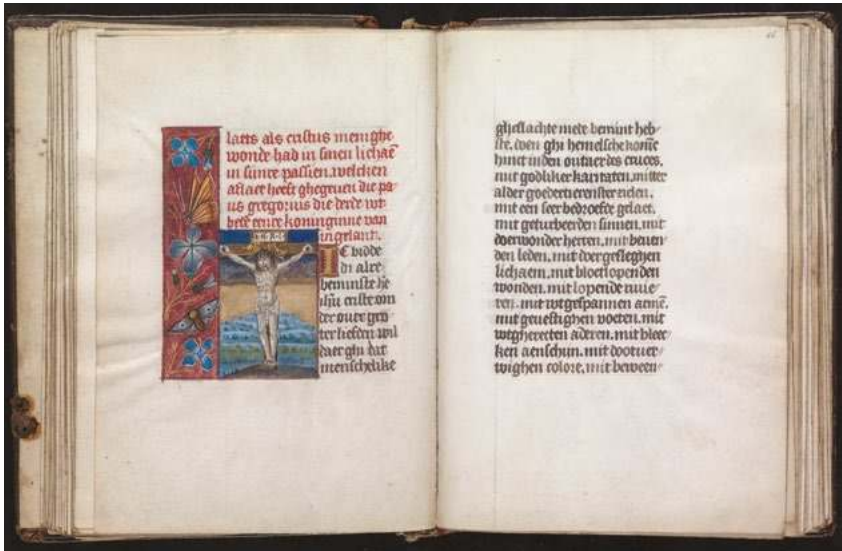 laets als cristus menighe
wonde had in sinen lichaē
in sinre passien. welcken
aflaet heeft ghegeuen die pa
us gregorius die derde wt
bete eenre koninginne van
ingelant.
IC bidde
di alre
beminste he
ihū criste om
der ouer gro
ter liefden wil
daer ghi dat
menschelike
gheslachte mede bemint heb
ste. doen ghi hemelsche konīc
hinct inden outaer des cruces.
mit godliker karitaten. mitter
alder goedertierenster zielen.
mit een seer bedroefde gelaet.
mit geturbeerden sinnen. mit
doerwonder herten. mit beuen
den leden. mit doergesleghen
lichaem. mit bloetlopenden
wonden. mit lopende riuie
ren. mit wtgespannen armē.
mit geuestighen voeten. mit
wtgherecten aderen. mit bleec
ken aenschijn. mit dootuer
wighen colore. mit beween